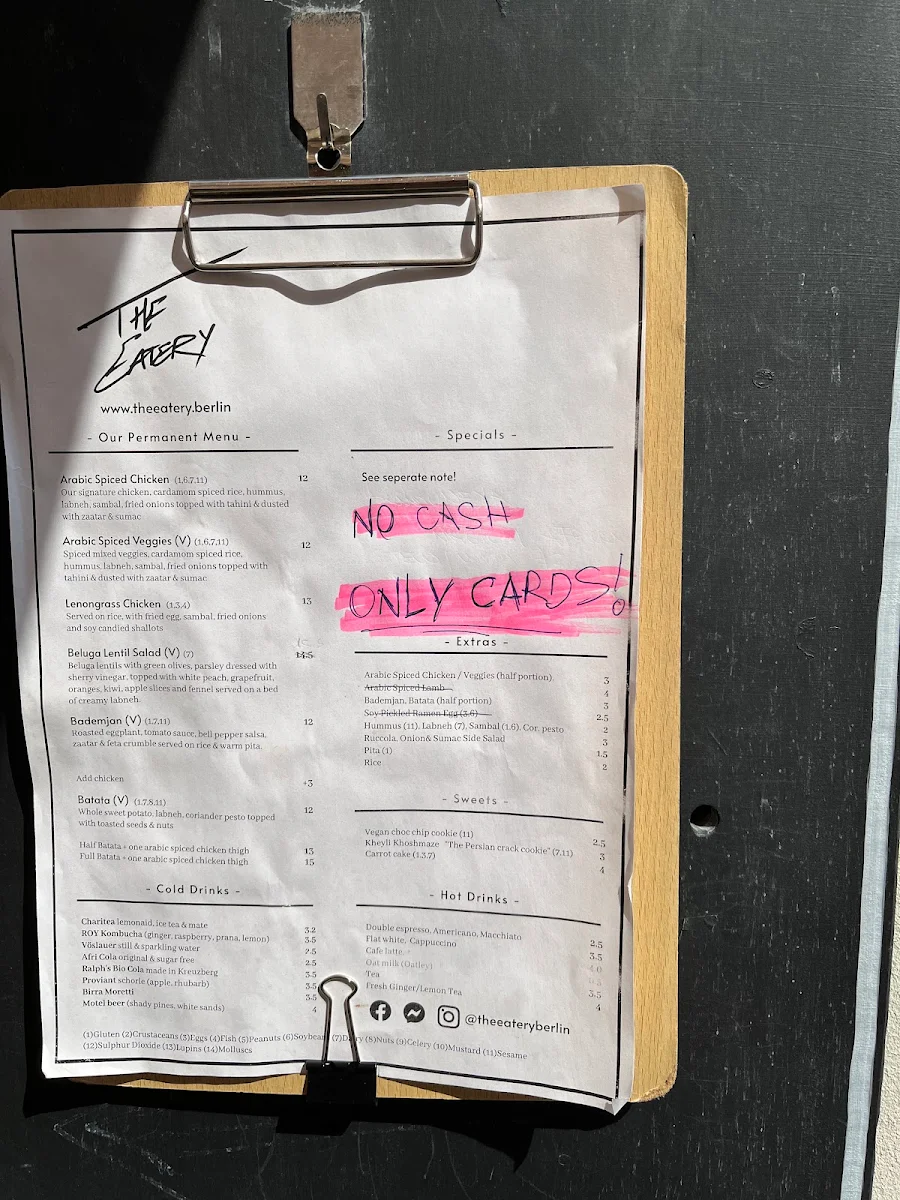 THE
EATERY
www.theeatery.berlin
- Our Permanent Menu -
Arabic Spiced Chicken (1,6,7,11) 12
Our signature chicken, cardamom spiced rice, hummus,
labneh, sambal, fried onions topped with tahini & dusted
with zaatar & sumac
Arabic Spiced Veggies (V) (1,6,7,11) 12
Spiced mixed veggies, cardamom spiced rice,
hummus, labneh, sambal, fried onions topped with
tahini & dusted with zaatar & sumac
Lenongrass Chicken (1,3,4) 13
Served on rice, with fried egg, sambal, fried onions
and soy candied shallots
Beluga Lentil Salad (V) (7) 14.5
Beluga lentils with green olives, parsley dressed with
sherry vinegar, topped with white peach, grapefruit,
oranges, kiwi, apple slices and fennel served on a bed
of creamy labneh.
Bademjan (V) (1,7,11) 12
Roasted eggplant, tomato sauce, bell pepper salsa,
zaatar & feta crumble served on rice & warm pita.
Add chicken +3
Batata (V) (1,7,8,11) 12
Whole sweet potato, labneh, coriander pesto topped
with toasted seeds & nuts
Half Batata + one arabic spiced chicken thigh 13
Full Batata + one arabic spiced chicken thigh 15
- Cold Drinks -
Charitea lemonaid, ice tea & mate 3.2
ROY Kombucha (ginger, raspberry, prana, lemon) 3.5
Vöslauer still & sparkling water 2.5
Afri Cola original & sugar free 2.5
Ralph's Bio Cola made in Kreuzberg 3.5
Proviant schorle (apple, rhubarb) 3.5
Birra Moretti 3.5
Motel beer (shady pines, white sands) 4
- Specials -
See seperate note!
NO CASH
ONLY CARDS!
- Extras -
Arabic Spiced Chicken / Veggies (half portion) 3
Arabic Spiced Lamb 4
Bademjan, Batata (half portion) 3
Soy Pickled Ramen Egg (3,6) 2.5
Hummus (11), Labneh (7), Sambal (1,6), Cor. pesto 2
Ruccola, Onion& Sumac Side Salad 3
Pita (1) 1.5
Rice 2
- Sweets -
Vegan choc chip cookie (11) 2.5
Kheyli Khoshmaze "The Persian crack cookie" (7,11) 3
Carrot cake (1,3,7) 4
- Hot Drinks -
Double espresso, Americano, Macchiato 2.5
Flat white, Cappuccino 3.5
Cafe latte 4.0
Oat milk (Oatley) 0.5
Tea 3.5
Fresh Ginger/Lemon Tea 4
@theeateryberlin
(1)Gluten (2)Crustaceans (3)Eggs (4)Fish (5)Peanuts (6)Soybeans (7)Dairy (8)Nuts (9)Celery (10)Mustard (11)Sesame
(12)Sulphur Dioxide (13)Lupins (14)Molluscs